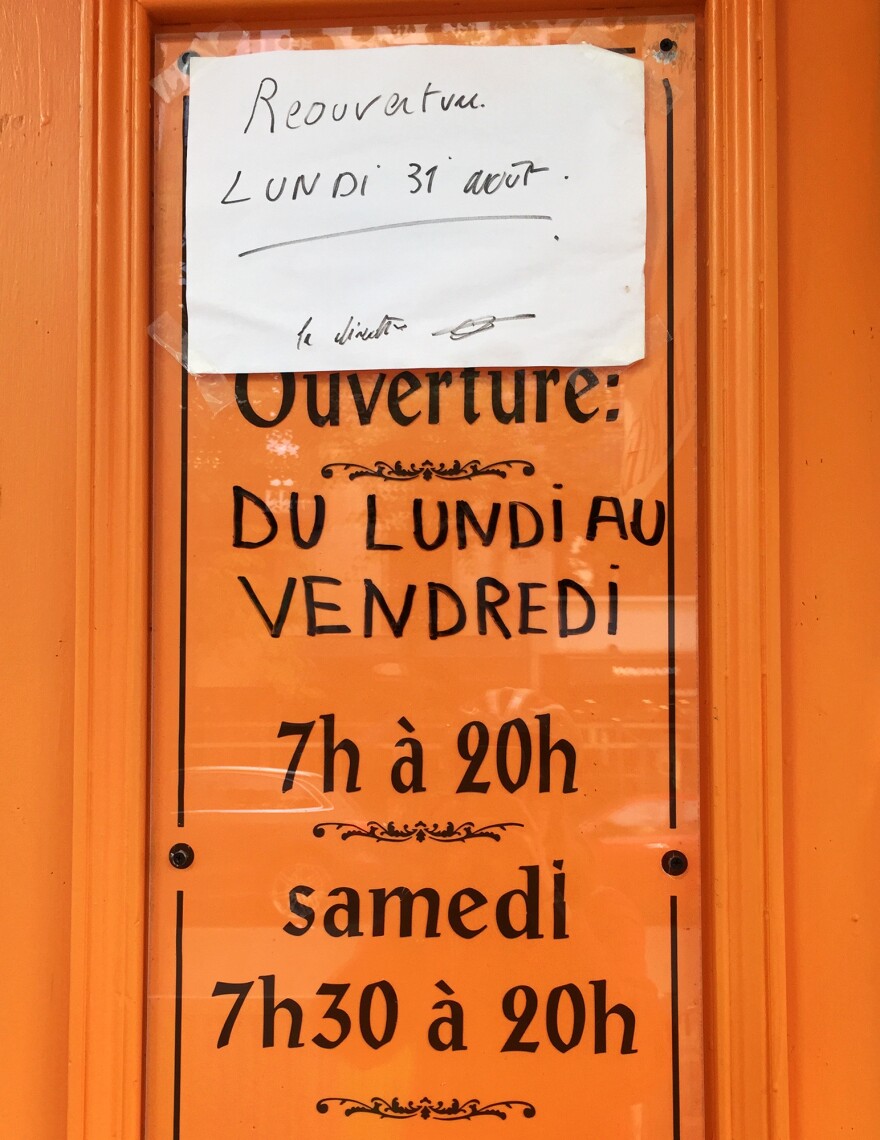 Reouverture.
LUNDi 31 août.
la direction
Ouverture:
DU LUNDi AU
VENDREDi
7h à 20h
samedi
7h30 à 20h